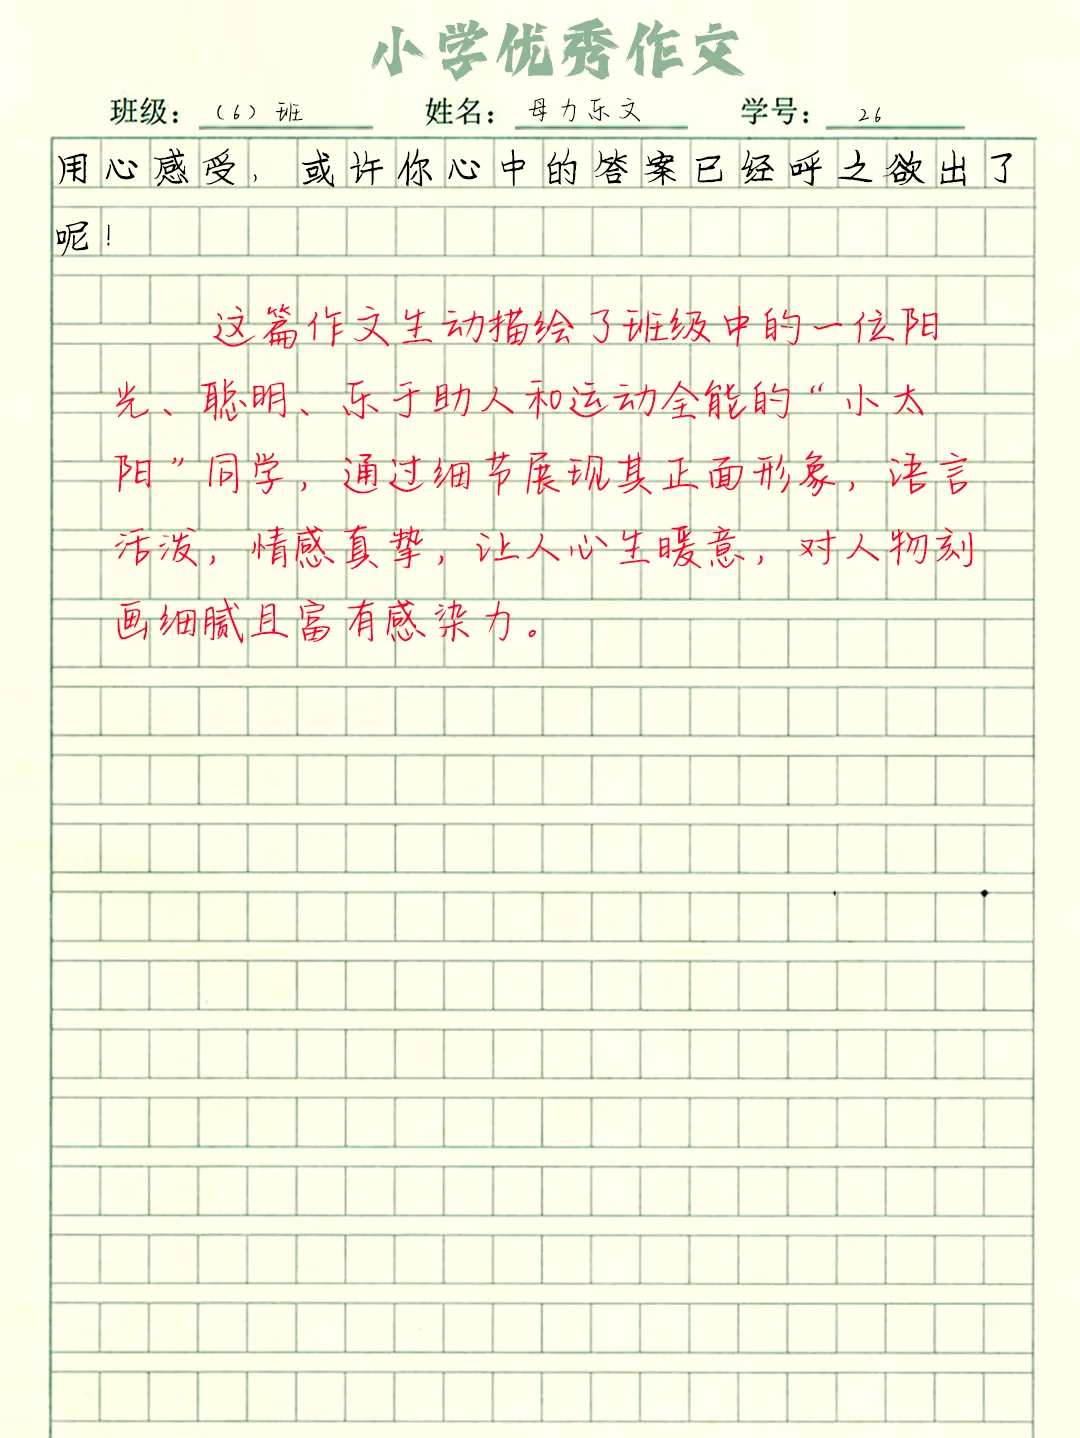 小学优秀作文
班级：（6）班 姓名：母力乐文 学号：26
用心感受，或许你心中的答案已经呼之欲出了
呢！
这篇作文生动描绘了班级中的一位阳
光、聪明、乐于助人和运动全能的“小太
阳”同学，通过细节展现其正面形象，语言
活泼，情感真挚，让人心生暖意，对人物刻
画细腻且富有感染力。